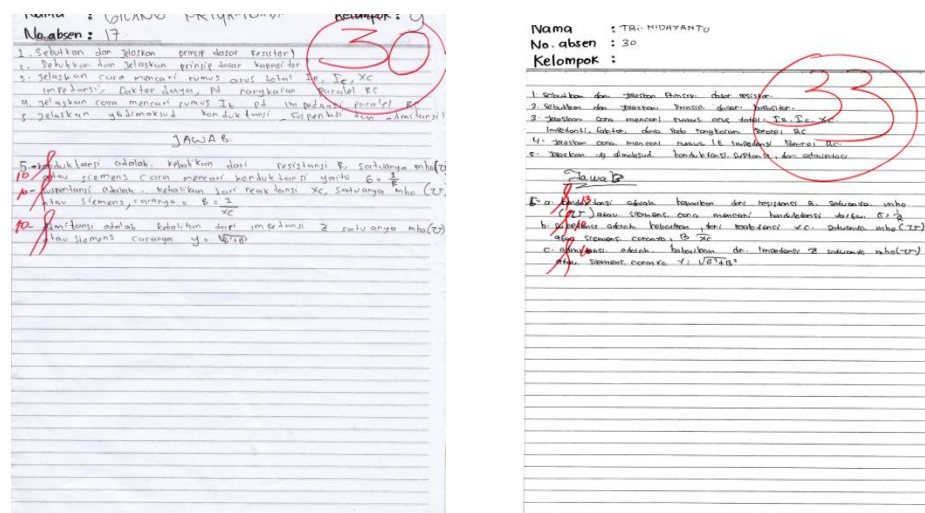 Nama :
No. absen : 17
30
1. Sebutkan dan Jelaskan prinsip dasar Resistor!
2. Sebutkan dan Jelaskan prinsip dasar kapasitor
3. Jelaskan cara mencari rumus arus total IR, Ic, XC
impedansi, faktor daya, pd rangkaian Paralel RC
4. Jelaskan cara mencari rumus It pd impedansi paralel RC
5. Jelaskan yg dimaksud konduktansi, suspentasi dan admitansi!
JAWAB
5. konduktansi adalah kebalikan dari resistansi R, satuanya mho (℧)
10 atau siemens cara mencari konduktansi yaitu G = 1/R
10 suspentansi adalah kebalikan dari reaktansi XC, satuanya mho (℧)
atau siemens, caranya = B = 1/XC
10 admitansi adalah kebalikan dari impedansi Z satuanya mho (℧)
atau siemens caranya y = √G²+B²
Nama : TRI HIDAYANTO
No. absen : 30
Kelompok :
33
1. Sebutkan dan Jelaskan Prinsip dasar resistor.
2. Sebutkan dan Jelaskan Prinsip dasar kapasitor.
3. Jelaskan cara mencari rumus arus total, IR, Ic, XC
Impedansi, faktor, daya Pada rangkaian Paralel RC
4. Jelaskan cara mencari rumus It impedansi Paralel RC.
5. Jelaskan yg dimaksud konduktansi, , dan admitansi
Jawab
5. a. konduktansi adalah kebalikan dari resistansi R. satuannya mho
(℧) atau siemens. cara mencari konduktansi yaitu G = 1/R
b. adalah kebalikan dari reaktansi XC. satuannya mho (℧)
atau siemens caranya B 1/XC
c. admitansi adalah kebalikan dr. Impedansi Z satuannya mho (℧)
atau siemens. caranya Y = √G²+B²